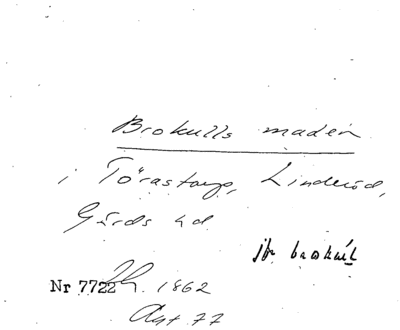 Brokulls maden
i Törastorp, Linderöd,
Gärds hd
jfr brokull
Nr 7722 Lh. 1862
Akt 77